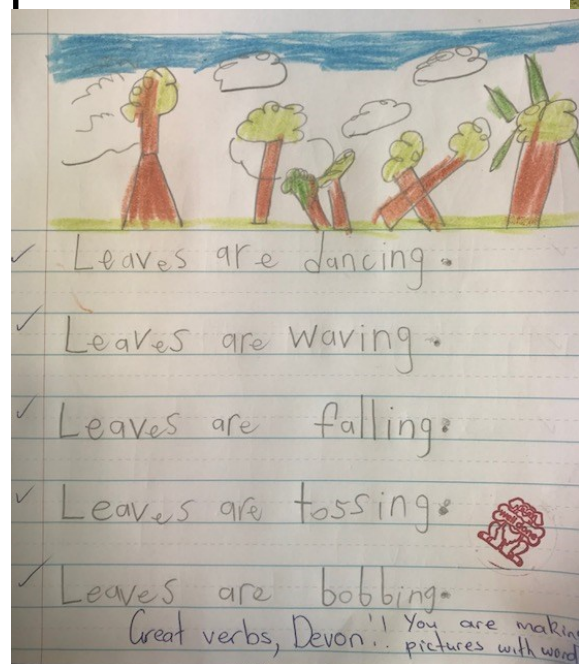 Leaves are dancing.
Leaves are waving.
Leaves are falling.
Leaves are tossing.
Leaves are bobbing.
Great verbs, Devon!! You are making
pictures with word